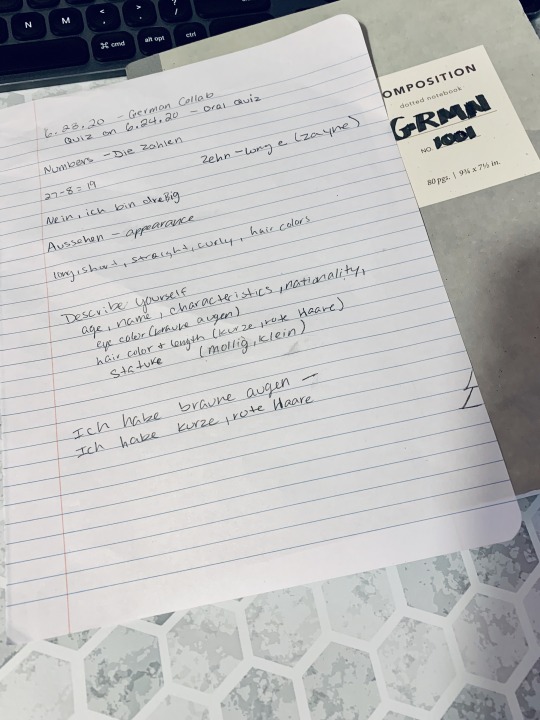 N
M
<
,
>
.
?
/
⌘ cmd
alt opt
ctrl
6.23.20 - German Collab
Quiz on 6.24.20 - Oral Quiz
Numbers - Die Zahlen
Zehn - long e (zayne)
27-8=19
Nein, ich bin dreßig
Aussehen - appearance
long, short, straight, curly, hair colors
Describe yourself
age, name, characteristics, nationality,
eye color (braune augen)
hair color + length (kurze, rote Haare)
Stature (mollig, klein)
Ich habe braune augen -
Ich habe kurze, rote Haare
OMPOSITION
dotted notebook
GRMN
NO. 1001
80 pgs. | 9¾ x 7½ in.